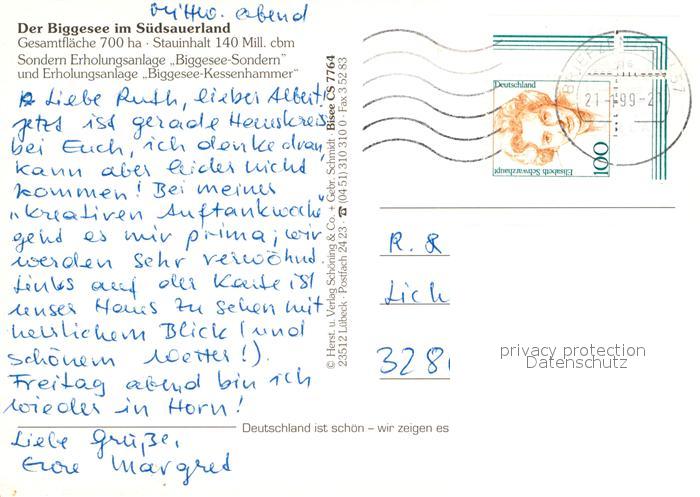 Mittw. abend
Der Biggesee im Südsauerland
Gesamtfläche 700 ha · Stauinhalt 140 Mill. cbm
Sondern Erholungsanlage „Biggesee-Sondern”
und Erholungsanlage „Biggesee-Kessenhammer”
Liebe Ruth, lieber Albert!
Jetzt ist gerade Hauskreis
bei Euch, ich denke dran,
kann aber leider nicht
kommen! Bei meiner
„kreativen Auftankwoche"
geht es mir prima; wir
werden sehr verwöhnt.
Links auf der Karte ist
unser Haus zu sehen mit
herrlichem Blick (und
schönem Wetter!).
Freitag abend bin ich
wieder in Horn!
Liebe Grüße,
Eure Margret
© Herst. u. Verlag Schöning & Co. + Gebr. Schmidt Bisee CS 7764
23512 Lübeck · Postfach 24 23 · ☎ (04 51) 310 310 0 · Fax 3 52 83
Deutschland ist schön – wir zeigen es
Deutschland
100
Elisabeth Schwarzhaupt
99
R. R
Lich
328
privacy protection
Datenschutz